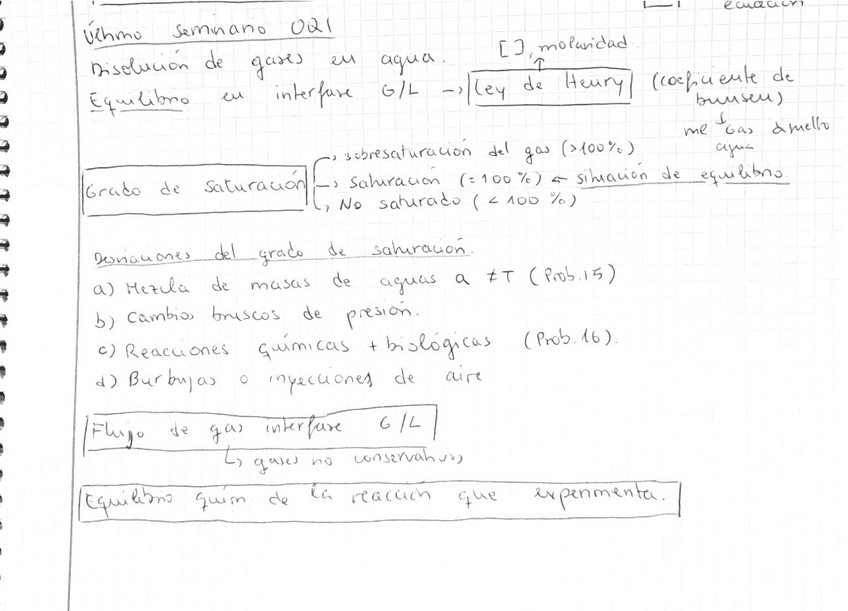 ecuación
Último seminario OQ1
Disolución de gases en agua. [ ], molaridad
Equilibrio en interfase G/L → Ley de Henry (coeficiente de
bunsen)
Gas
agua
Grado de saturación
→ sobresaturación del gas (>100%)
→ saturación (=100%) ← situación de equilibrio.
→ No saturado (<100 %)
Desviaciones del grado de saturación.
a) Mezcla de masas de aguas a ≠T (Prob.15)
b) Cambios bruscos de presión.
c) Reacciones químicas + biológicas (Prob.16).
d) Burbujas o inyecciones de aire
Flujo de gas interfase G/L
↳ gases no conservativos
Equilibrio quím de la reacción que experimenta.